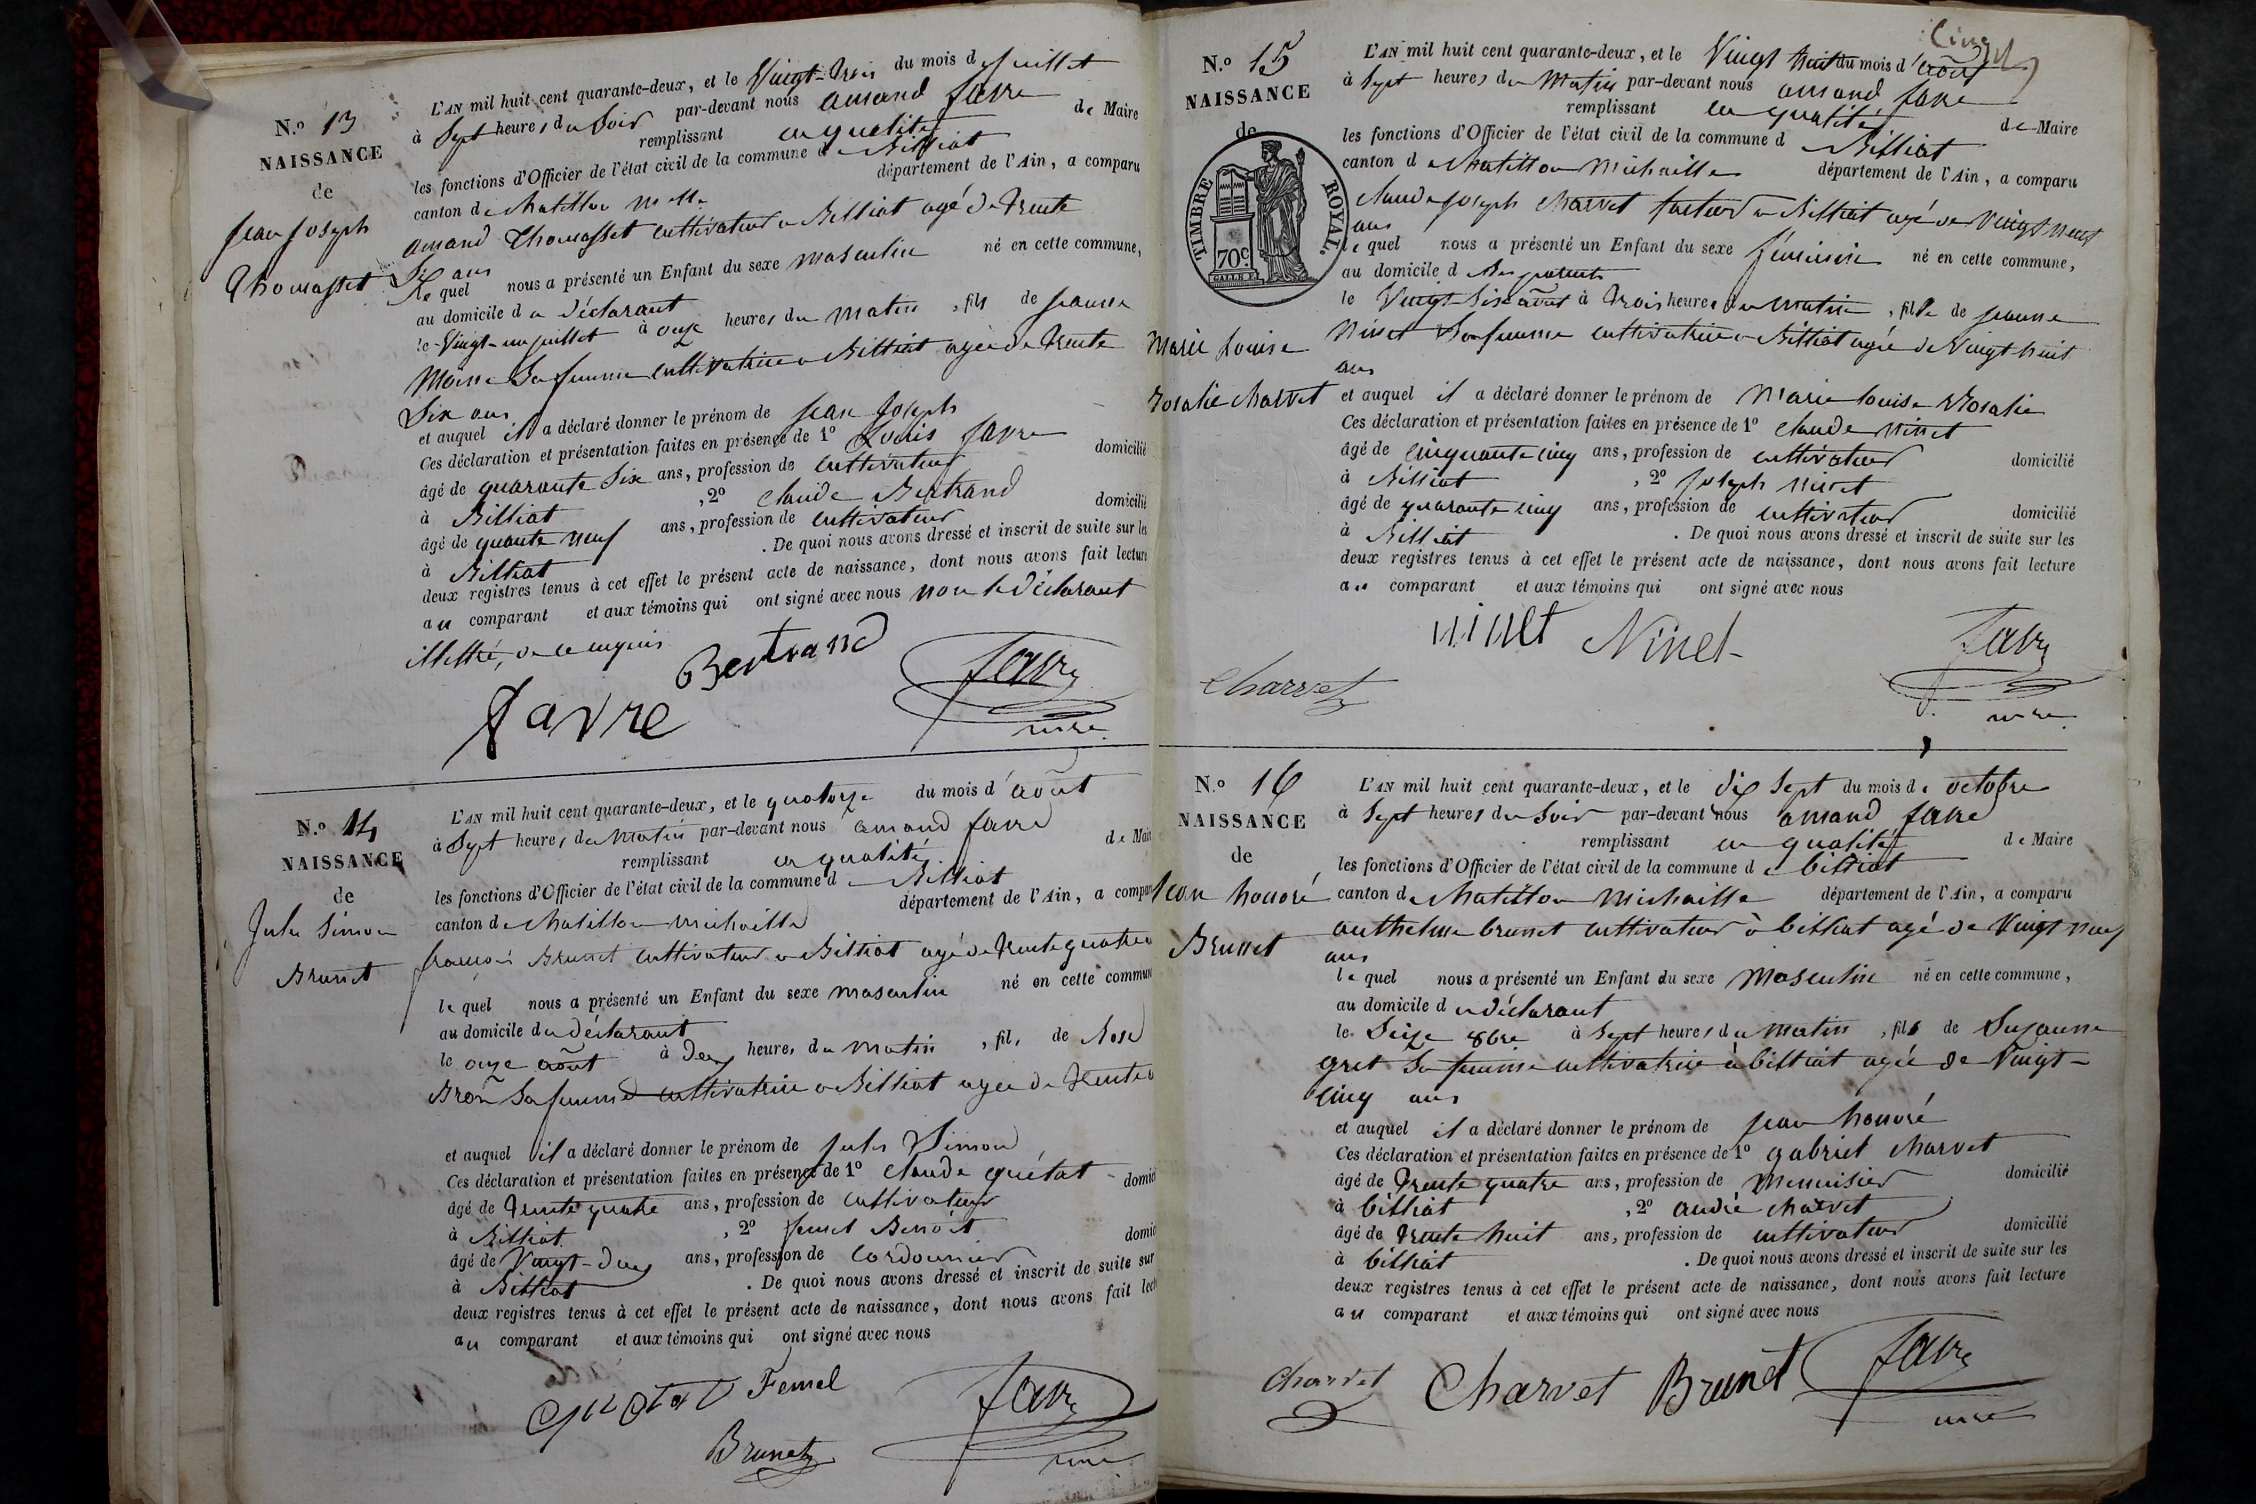 N.º 13
NAISSANCE
de
Jean Joseph
Thomasset
L'AN mil huit cent quarante-deux, et le Vingt-trois du mois de juillet
à Sept heures du Soir par-devant nous amand favre
remplissant en qualité de Maire
les fonctions d'Officier de l'état civil de la commune de Billiat
canton de Chatillon département de l'Ain, a comparu
amand Thomasset cultivateur a Billiat agé de Trente
Six ans
le quel nous a présenté un Enfant du sexe masculin né en cette commune,
au domicile du déclarant
le Vingt-un juillet à onze heures du matin, fils de jeanne
Moine Sa femme cultivatrice a Billiat agée de Trente
Six ans
et auquel il a déclaré donner le prénom de jean Joseph
Ces déclaration et présentation faites en présence de 1º Louis favre
âgé de quarante Six ans, profession de cultivateur domicilié
à Billiat, 2º claude Bertrand
âgé de quarante neuf ans, profession de cultivateur domicilié
à Billiat. De quoi nous avons dressé et inscrit de suite sur les
deux registres tenus à cet effet le présent acte de naissance, dont nous avons fait lecture
au comparant et aux témoins qui ont signé avec nous non le déclarant
illettré, de ce enquis
Bertrand
favre
favre
maire
N.º 14
NAISSANCE
de
Jules Simon
Brunet
L'AN mil huit cent quarante-deux, et le quatorze du mois d'août
à Sept heures du Matin par-devant nous amand favre
remplissant en qualité de Mair
les fonctions d'Officier de l'état civil de la commune de Billiat
canton de Chatillon michaille département de l'Ain, a compar
françois Brunet cultivateur a Billiat agé de Trente quatre
le quel nous a présenté un Enfant du sexe masculin né en cette commun
au domicile du déclarant
le onze août à deux heures du matin, fils de Rose
Sa femme cultivatrice a Billiat agée de Trente
et auquel il a déclaré donner le prénom de Jules Simon
Ces déclaration et présentation faites en présence de 1º claude guétat
âgé de Trente quatre ans, profession de cultivateur domici
à Billiat, 2º femel Benoit
âgé de Vingt-deux ans, profession de cordonnier domic
à Billiat. De quoi nous avons dressé et inscrit de suite sur
deux registres tenus à cet effet le présent acte de naissance, dont nous avons fait lect
au comparant et aux témoins qui ont signé avec nous
Femel
Brunet
favre
maire
N.º 15
NAISSANCE
de
TIMBRE ROYAL.
70 c.
Marie Louise
Rosalie Charvet
L'AN mil huit cent quarante-deux, et le Vingt huit du mois d'août
à Sept heures du Matin par-devant nous amand favre
remplissant en qualité de Maire
les fonctions d'Officier de l'état civil de la commune de Billiat
canton de Chatillon michaille département de l'Ain, a comparu
claude joseph charvet facteur a Billiat agé de Vingt neuf
ans
le quel nous a présenté un Enfant du sexe féminin né en cette commune,
au domicile des parents
le Vingt Six août à Trois heures du matin, fille de jeanne
Ninet Sa femme cultivatrice a Billiat agée de Vingt huit
ans
et auquel il a déclaré donner le prénom de Marie louise Rosalie
Ces déclaration et présentation faites en présence de 1º claude Ninet
âgé de cinquante cinq ans, profession de cultivateur domicilié
à Billiat, 2º joseph ninet
âgé de quarante cinq ans, profession de cultivateur domicilié
à Billiat. De quoi nous avons dressé et inscrit de suite sur les
deux registres tenus à cet effet le présent acte de naissance, dont nous avons fait lecture
au comparant et aux témoins qui ont signé avec nous
ninet Ninet
Charvet
favre
maire
N.º 16
NAISSANCE
de
Jean honoré
Brunet
L'AN mil huit cent quarante-deux, et le dix Sept du mois de octobre
à Sept heures du Soir par-devant nous amand favre
remplissant en qualité de Maire
les fonctions d'Officier de l'état civil de la commune de billiat
canton de Chatillon Michaille département de l'Ain, a comparu
anthelme brunet cultivateur à billiat agé de Vingt neuf
ans
le quel nous a présenté un Enfant du sexe Masculin né en cette commune,
au domicile du déclarant
le Seize 8bre à Sept heures du Matin, fils de Suzanne
gret Sa femme cultivatrice à billiat agée de Vingt-
cinq ans
et auquel il a déclaré donner le prénom de jean honoré
Ces déclaration et présentation faites en présence de 1º gabriel charvet
âgé de Trente quatre ans, profession de Menuisier domicilié
à billiat, 2º andré charvet
âgé de Trente huit ans, profession de cultivateur domicilié
à billiat. De quoi nous avons dressé et inscrit de suite sur les
deux registres tenus à cet effet le présent acte de naissance, dont nous avons fait lecture
au comparant et aux témoins qui ont signé avec nous
Charvet Charvet Brunet favre
maire